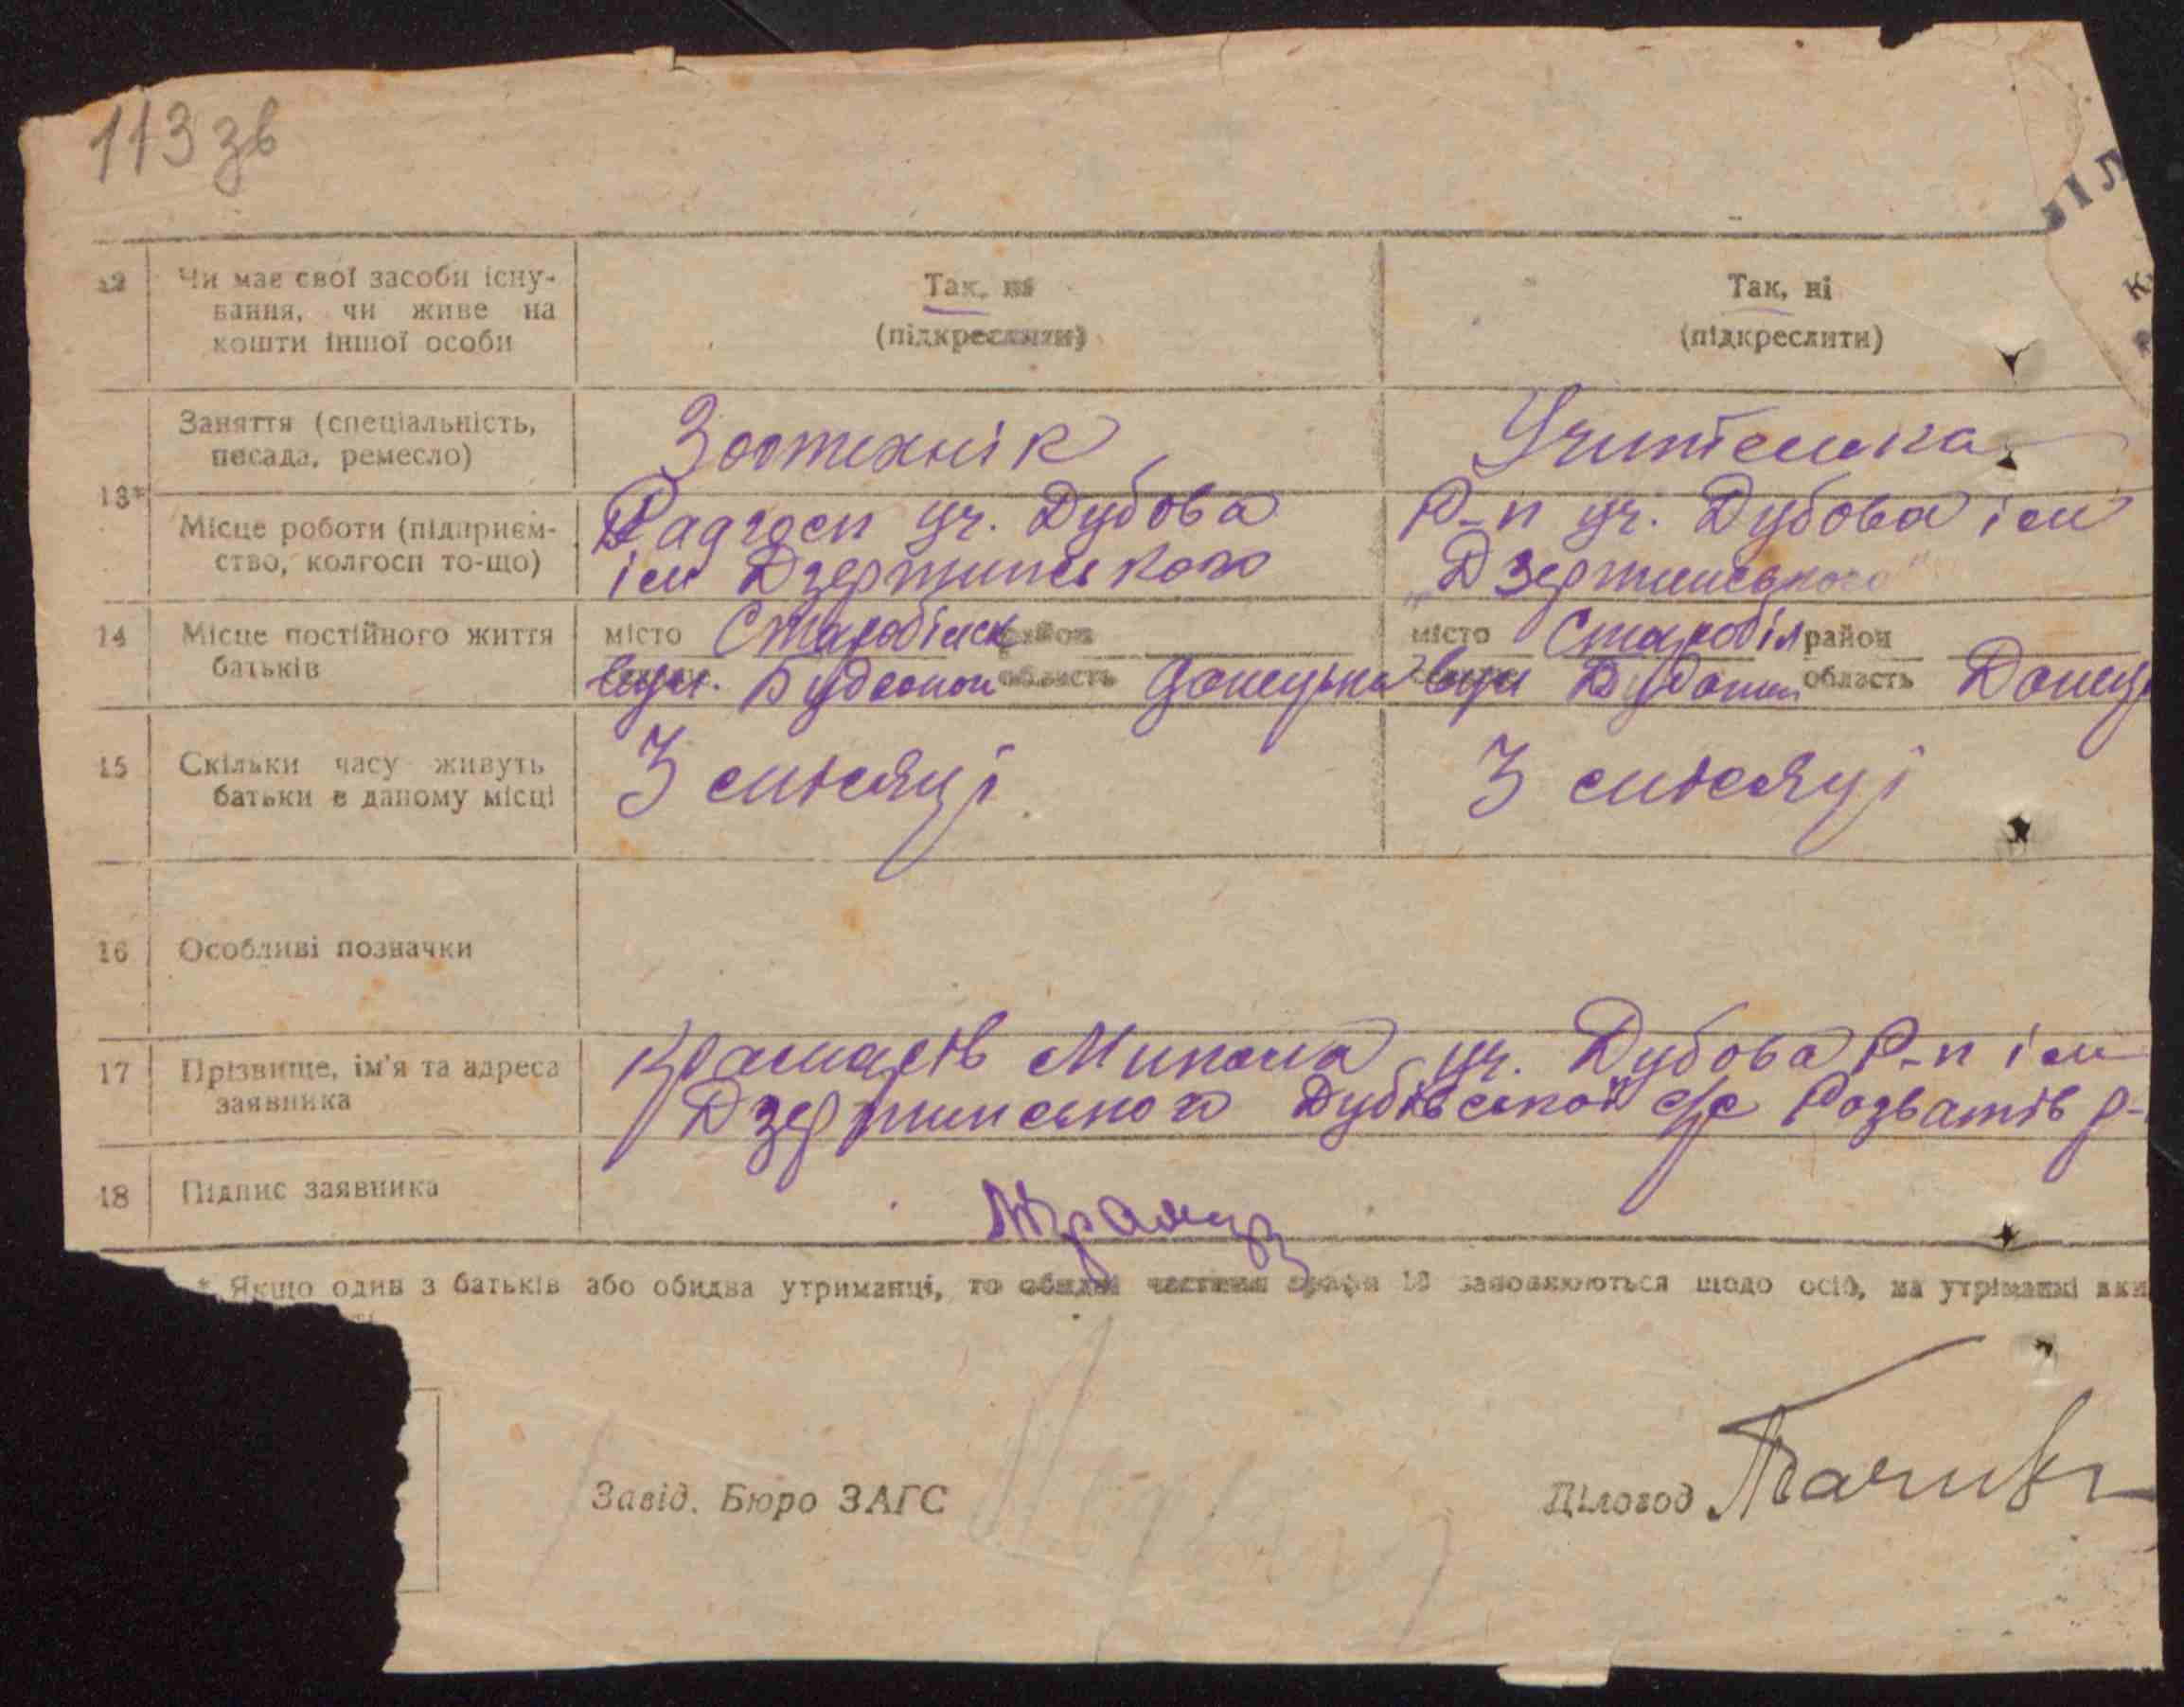 113 зв
ІЛ
12 Чи має свої засоби існу- Так, ні Так, ні
вання, чи живе на (підкреслити) (підкреслити)
кошти іншої особи
13* Заняття (спеціальність, Зоотехнік Учителька
посада, ремесло)
Місце роботи (підприєм- Радгосп уч. Дубова Р-п уч. Дубова ім
ство, колгосп то-що) ім Дзержинського „Дзержинського"
14 Місце постійного життя місто Старобільск район місто Старобіл район
батьків вул. Будьонон область Донецька вул область Донец
15 Скільки часу живуть 3 місяці 3 місяці
батьки в даному місці
16 Особливі позначки
17 Прізвище, ім'я та адреса Микола уч. Дубова Р-п ім
заявника Дзержинського Дубівської с/р Розватів р-
18 Підпис заявника
* Якщо один з батьків або обидва утриманці, то обидві частини графи 13 заповнюються щодо осіб, на утриманні яки
Завід. Бюро ЗАГС Діловод